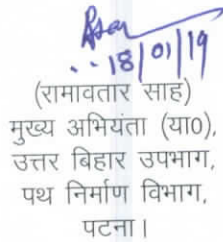 18/01/19
(रामावतार साह)
मुख्य अभियंता (या0),
उत्तर बिहार उपभाग,
पथ निर्माण विभाग,
पटना।